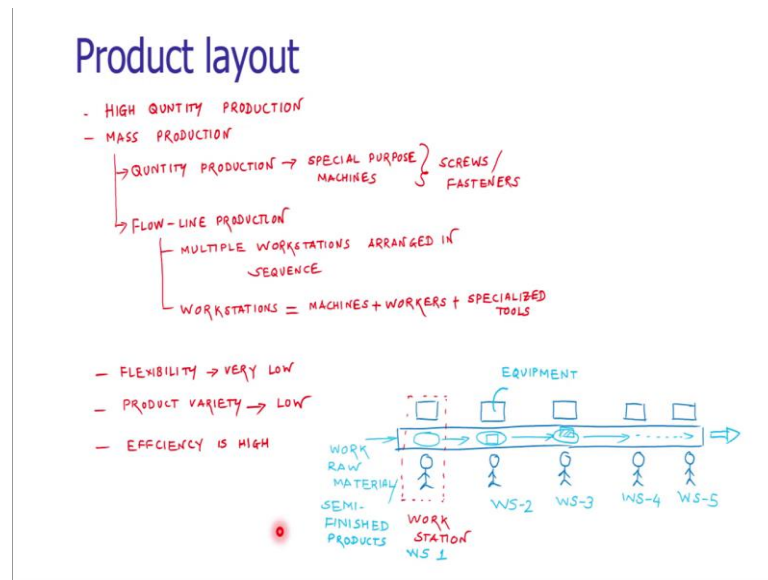 Product layout
- HIGH QUNTITY PRODUCTION
- MASS PRODUCTION
→ QUNTITY PRODUCTION → SPECIAL PURPOSE
MACHINES
SCREWS/
FASTENERS
→ FLOW-LINE PRODUCTION
MULTIPLE WORKSTATIONS ARRANGED IN
SEQUENCE
WORKSTATIONS = MACHINES + WORKERS + SPECIALIZED
TOOLS
- FLEXIBILITY → VERY LOW
- PRODUCT VARIETY → LOW
- EFFCIENCY IS HIGH
EQUIPMENT
WORK
RAW
MATERIAL/
SEMI-
FINISHED
PRODUCTS
WORK
STATION
WS 1
WS-2
WS-3
WS-4
WS-5